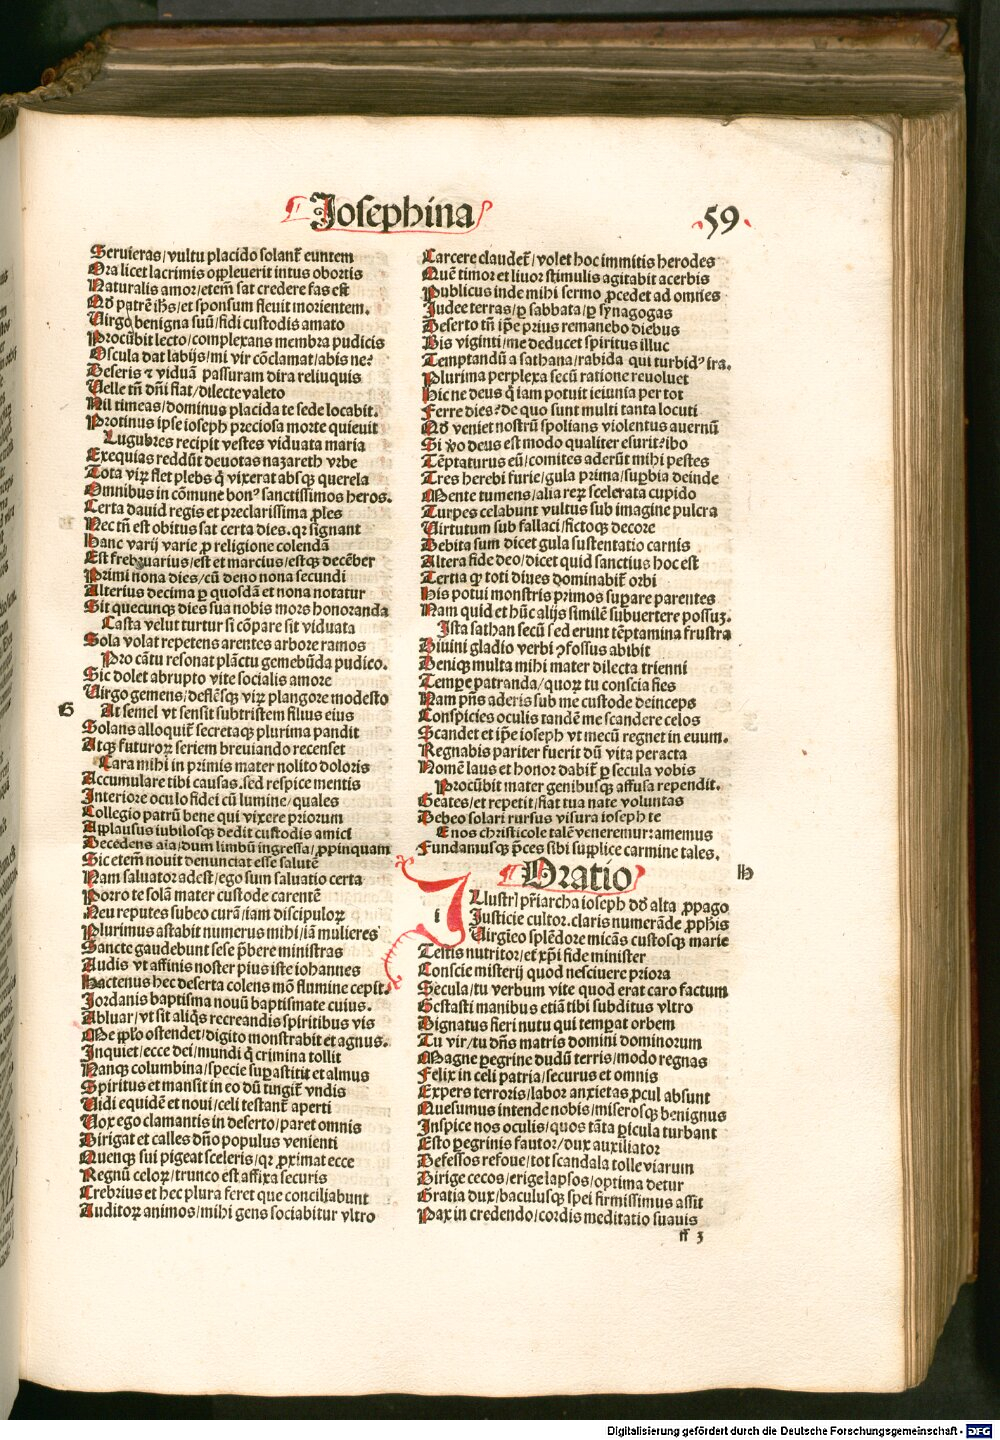 Josephina
59
Seruieras/vultu placido solant̃ euntem
Ora licet lacrimis oppleuerit intus obortis
Naturalis amor/etem̃ sat credere fas est
Qd̃ patrẽ ihs̃/et sponsum fleuit morientem.
Uirgo benigna suũ/fidi custodis amato
Procũbit lecto/complexans membra pudicis
Oscula dat labijs/mi vir cõclamat/abis ne?
Deseris ⁊ viduã passuram dira reliuquis
Uelle tm̃ dñi fiat/dilecte valeto
Nil timeas/dominus placida te sede locabit.
Protinus ipse ioseph preciosa morte quieuit
Lugubres recipit vestes viduata maria
Exequias reddũt deuotas nazareth vrbe
Tota viꝝ flet plebs q̃ vixerat absqꝫ querela
Omnibus in cõmune bonꝰ sanctissimos heros.
Certa dauid regis et preclarissima ꝓles
Nec tm̃ est obitus sat certa dies.qꝛ signant
Hanc varij varie ꝓ religione colendã
Est frebruarius/est et marcius/estqꝫ decẽber
Primi nona dies/cũ deno nona secundi
Alterius decima ꝑ quosdã et nona notatur
Sit quecunqꝫ dies sua nobis mors honoranda
Casta velut turtur si cõpare sit viduata
Sola volat repetens arentes arbore ramos
Pro cãtu resonat plãctu gemebũda pudico.
Sic dolet abrupto vite socialis amore
Uirgo gemens/deflẽsqꝫ viꝝ plangore modesto
G
At semel vt sensit subtristem filius eius
Solans alloquit̃ secretaqꝫ plurima pandit
Atqꝫ futuroꝝ seriem breuiando recenset
Cara mihi in primis mater nolito doloris
Accumulare tibi causas.sed respice mentis
Interiore oculo fidei cũ lumine/quales
Collegio patrũ bene qui vixere priorum
Applausus iubilosqꝫ dedit custodis amici
Decedens aĩa/dum limbũ ingressa/ꝓpinquam
Sic etem̃ nouit denunciat esse salutẽ
Nam saluator adest/ego sum saluatio certa
Porro te solã mater custode carentẽ
Neu reputes subeo curã/iam discipuloꝝ
Plurimus astabit numerus mihi/iã mulieres
Sancte gaudebunt sese p̃bere ministras
Audis vt affinis noster pius iste iohannes
Hactenus hec deserta colens mõ flumine cepit.
Jordanis baptisma nouũ baptismate cuius.
Abluar/vt sit aliq̃s recreandis spiritibus vis
Me ꝓpl̃o ostendet/digito monstrabit et agnus.
Inquiet/ecce dei/mundi q̃ crimina tollit
Nanqꝫ columbina/specie suꝑastitit et almus
Spiritus et mansit in eo dũ tingit̃ vndis
Uidi equidẽ et noui/celi testant̃ aperti
Uox ego clamantis in deserto/paret omnis
Dirigat et calles dño populus venienti
Quenqꝫ sui pigeat sceleris/qꝛ ꝓximat ecce
Regnũ celoꝝ/trunco est affixa securis
Crebrius et hec plura feret que conciliabunt
Auditoꝝ animos/mihi gens sociabitur vltro
Carcere claudet̃/volet hoc immitis herodes
Quẽ timor et liuor stimulis agitabit acerbis
Publicus inde mihi sermo ꝓcedet ad omnes
Judee terras/ꝑ sabbata/ꝑ synagogas
Deserto tñ ip̃e prius remanebo diebus
Bis viginti/me deducet spiritus illuc
Temptandũ a sathana/rabida qui turbidꝰ ira.
Plurima perplexa secũ ratione reuoluet
Hic ne deus q̃ iam potuit ieiunia per tot
Ferre dies?de quo sunt multi tanta locuti
Qd̃ veniet nostrũ spolians violentus auernũ
Si vo deus est modo qualiter esurit?ibo
Tẽptaturus eũ/comites aderũt mihi pestes
Tres herebi furie/gula prima/suꝑbia deinde
Mente tumens/alia reꝝ scelerata cupido
Turpes celabunt vultus sub imagine pulcra
Uirtutum sub fallaci/fictoqꝫ decore
Debita sum dicet gula sustentatio carnis
Altera fide deo/dicet quid sanctius hoc est
Tertia qꝛ toti diues dominabit̃ orbi
His potui monstris primos suꝑare parentes
Nam quid et hũc alijs similẽ subuertere possuꝫ.
Ista sathan secũ sed erunt tẽptamina frustra
Diuini gladio verbi ꝯfossus abibit
Deniqꝫ multa mihi mater dilecta trienni
Tempe patranda/quoꝝ tu conscia fies
Nam pñs aderis sub me custode deinceps
Conspicies oculis tandẽ me scandere celos
Scandet et ip̃e ioseph vt mecũ regnet in euum.
Regnabis pariter fuerit dũ vita peracta
Nomẽ laus et honor dabit̃ ꝑ secula vobis
Procũbit mater genibusqꝫ affusa rependit.
Grates/et repetit/fiat tua nate voluntas
Debeo solari rursus visura ioseph te
E nos christicole talẽ veneremur:amemus
Fundamusqꝫ p̃ces sibi supplice carmine tales.
Oratio
H
i
Llustr̃ pr̃iarcha ioseph dd̃ alta ꝓpago
Justicie cultor.claris numerãde ꝓphis
Uirgĩeo splẽdore micãs custosqꝫ marie
Testis nutritor/et xp̃i fide minister
Conscie misterij quod nesciuere priora
Secula/tu verbum vite quod erat caro factum
Gestasti manibus etiã tibi subditus vltro
Dignatus fieri nutu qui temꝑat orbem
Tu vir/tu dñs matris domini dominorum
Magne ꝑegrine dudũ terris/modo regnas
Felix in celi patria/securus et omnis
Expers terroris/labor anxietas ꝓcul absunt
Quesumus intende nobis/miserosqꝫ benignus
Inspice nos oculis/quos tãta ꝑicula turbant
Esto ꝑegrinis fautor/dux auxiliator
Defessos refoue/tot scandala tolle viarum
Dirige cecos/erige lapsos/optima detur
Gratia dux/baculusqꝫ spei firmissimus assit
Pax in credendo/cordis meditatio suauis
ff 3
Digitalisierung gefördert durch die Deutsche Forschungsgemeinschaft - DFG